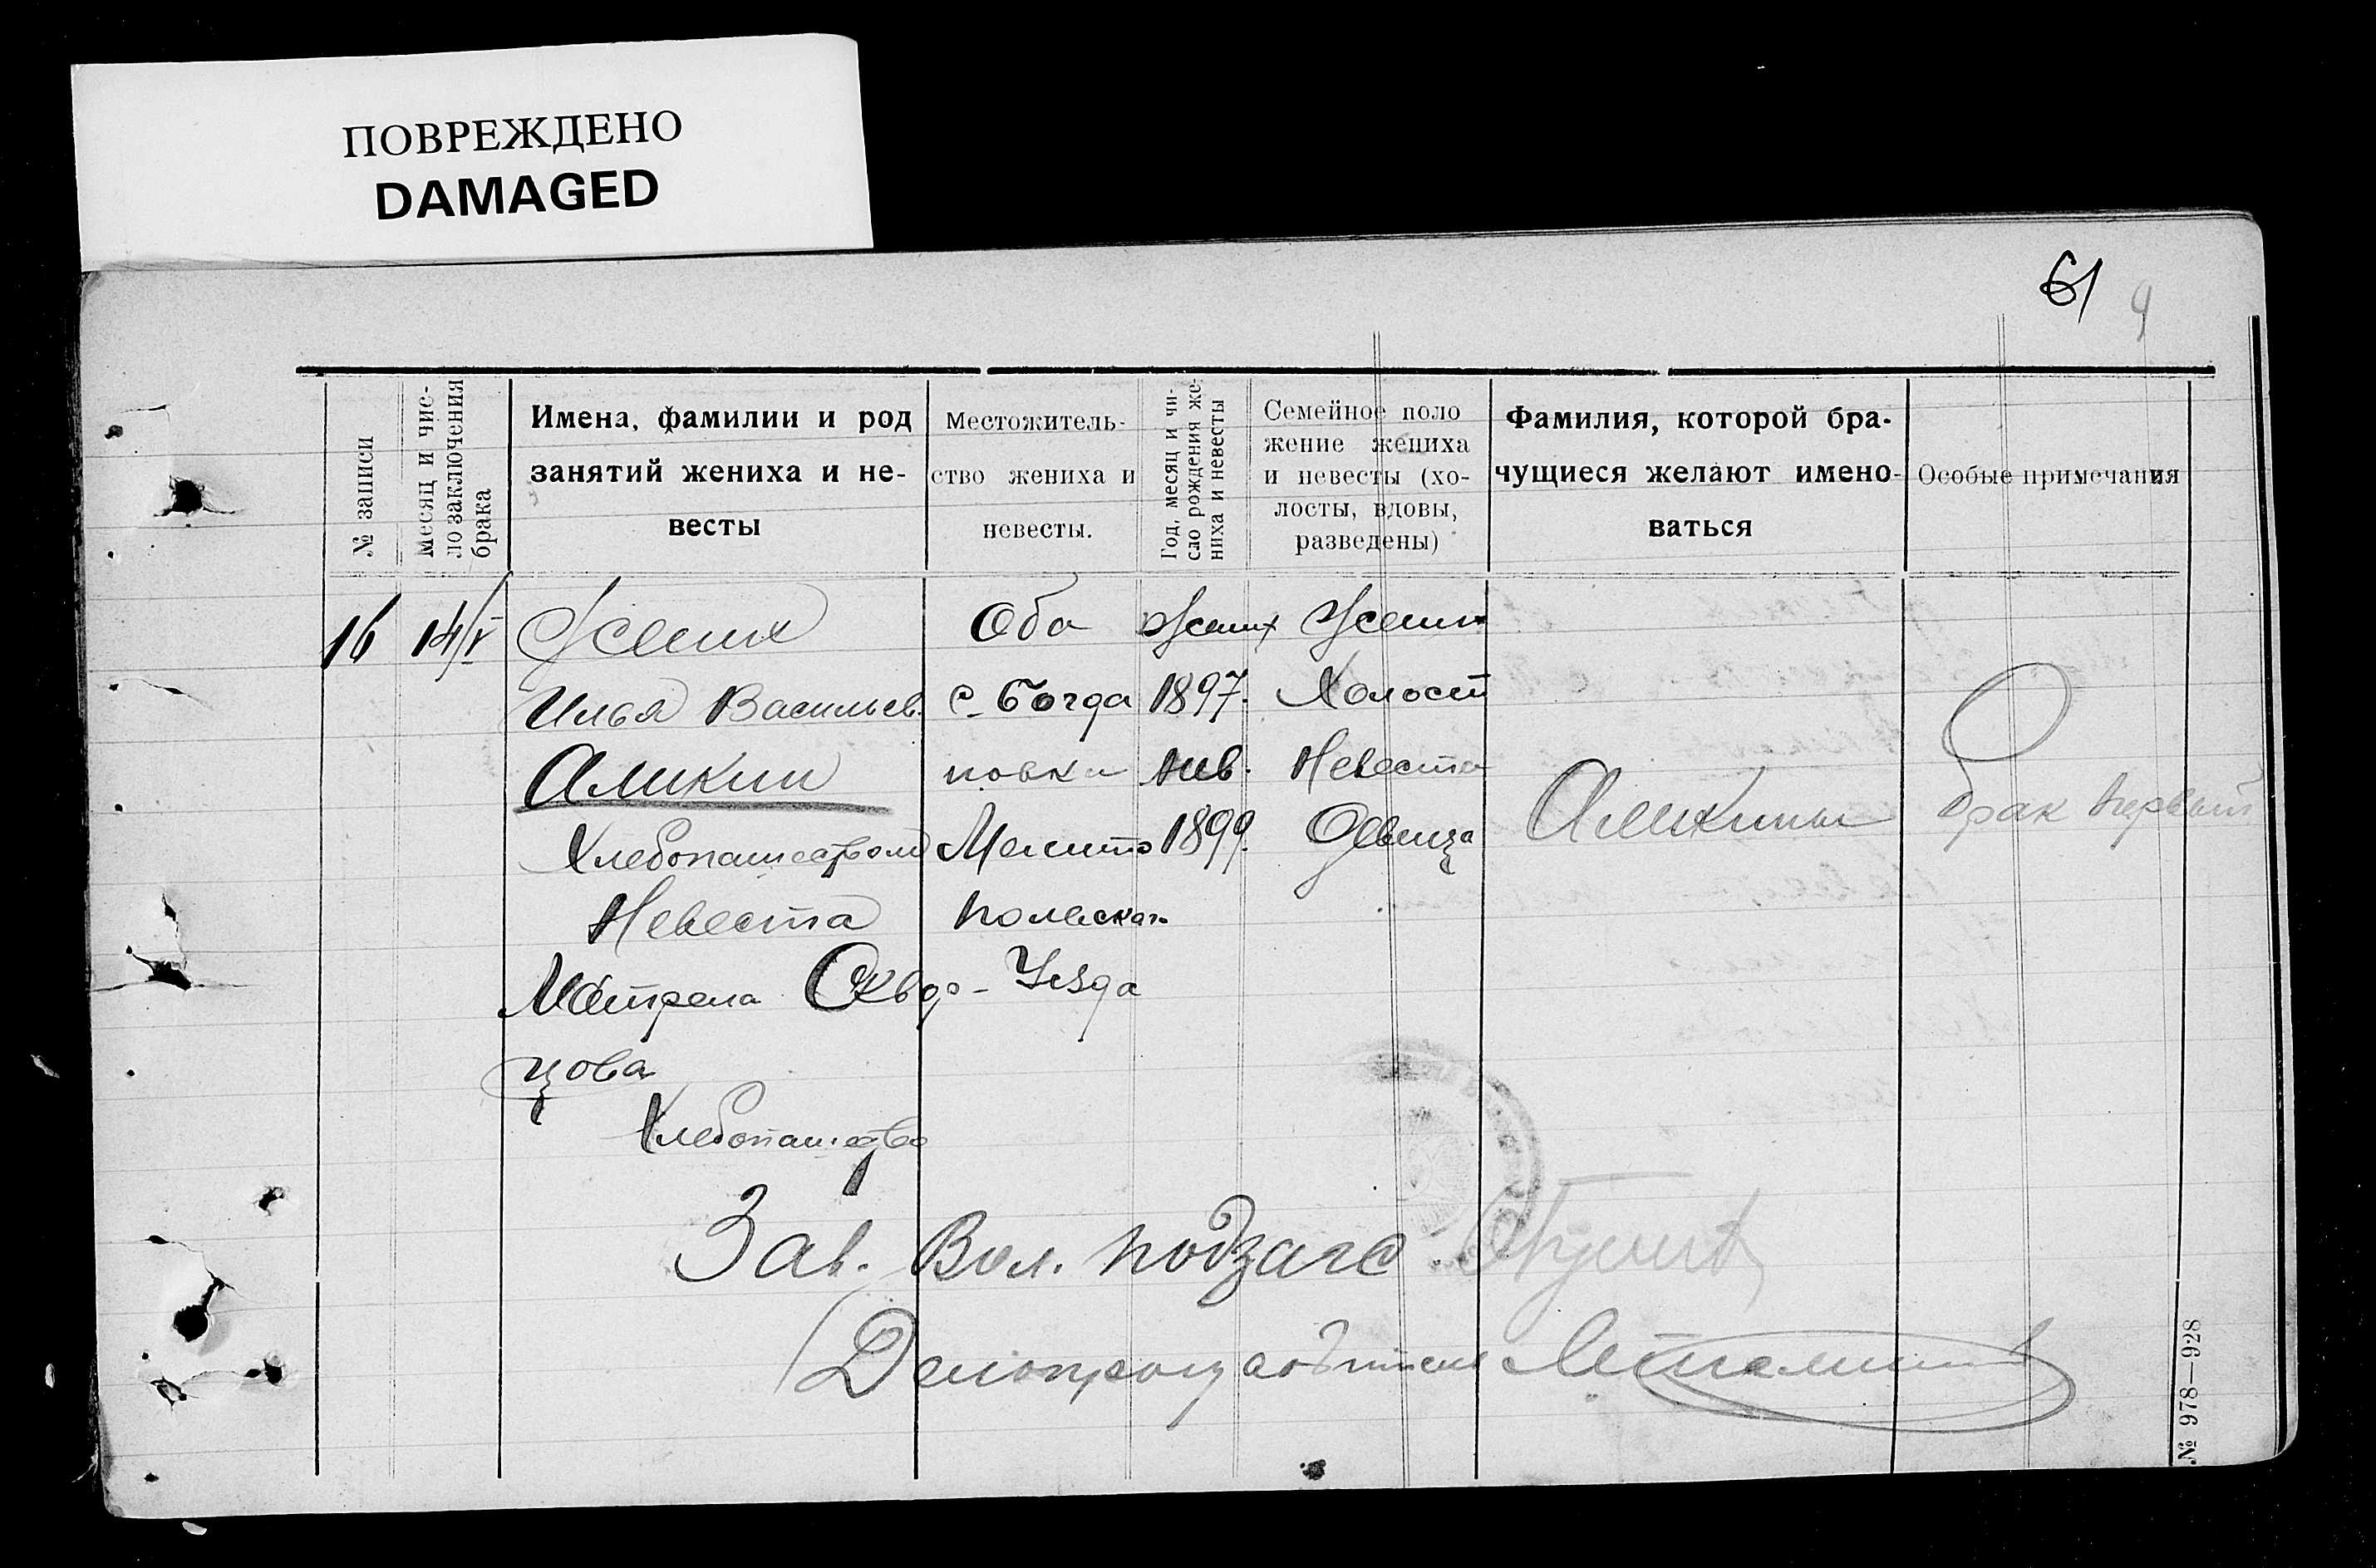 ПОВРЕЖДЕНО
DAMAGED
61
№ записи
Месяц и чис-
ло заключения
брака
Имена, фамилии и род
занятий жениха и не-
весты
Местожитель-
ство жениха и
невесты.
Год, месяц и чи-
сло рождения же-
ниха и невесты
Семейное поло
жение жениха
и невесты (хо-
лосты, вдовы,
разведены)
Фамилия, которой бра-
чущиеся желают имено-
ваться
Особые примечания
16
14/V
Жених
Илья Васильев.
Аликин
Хлебопашеством
Невеста
Матрена Сквор-
цова
Хлебопашество
Оба
с. Богда
новки
Мелито
польскаго
Уезда
Жених
1897.
Нев.
1899.
Жених
Холост
Невеста
Девица
Аликины
брак первый
Зав. Вол. подзагс
Делопроизводитель
№ 978—928